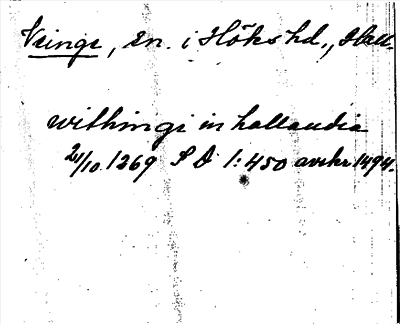 Veinge, sn. i Höks hd., Hall.
withingi in hallandia
21/10 1269 SD 1:450 avskr 1494.